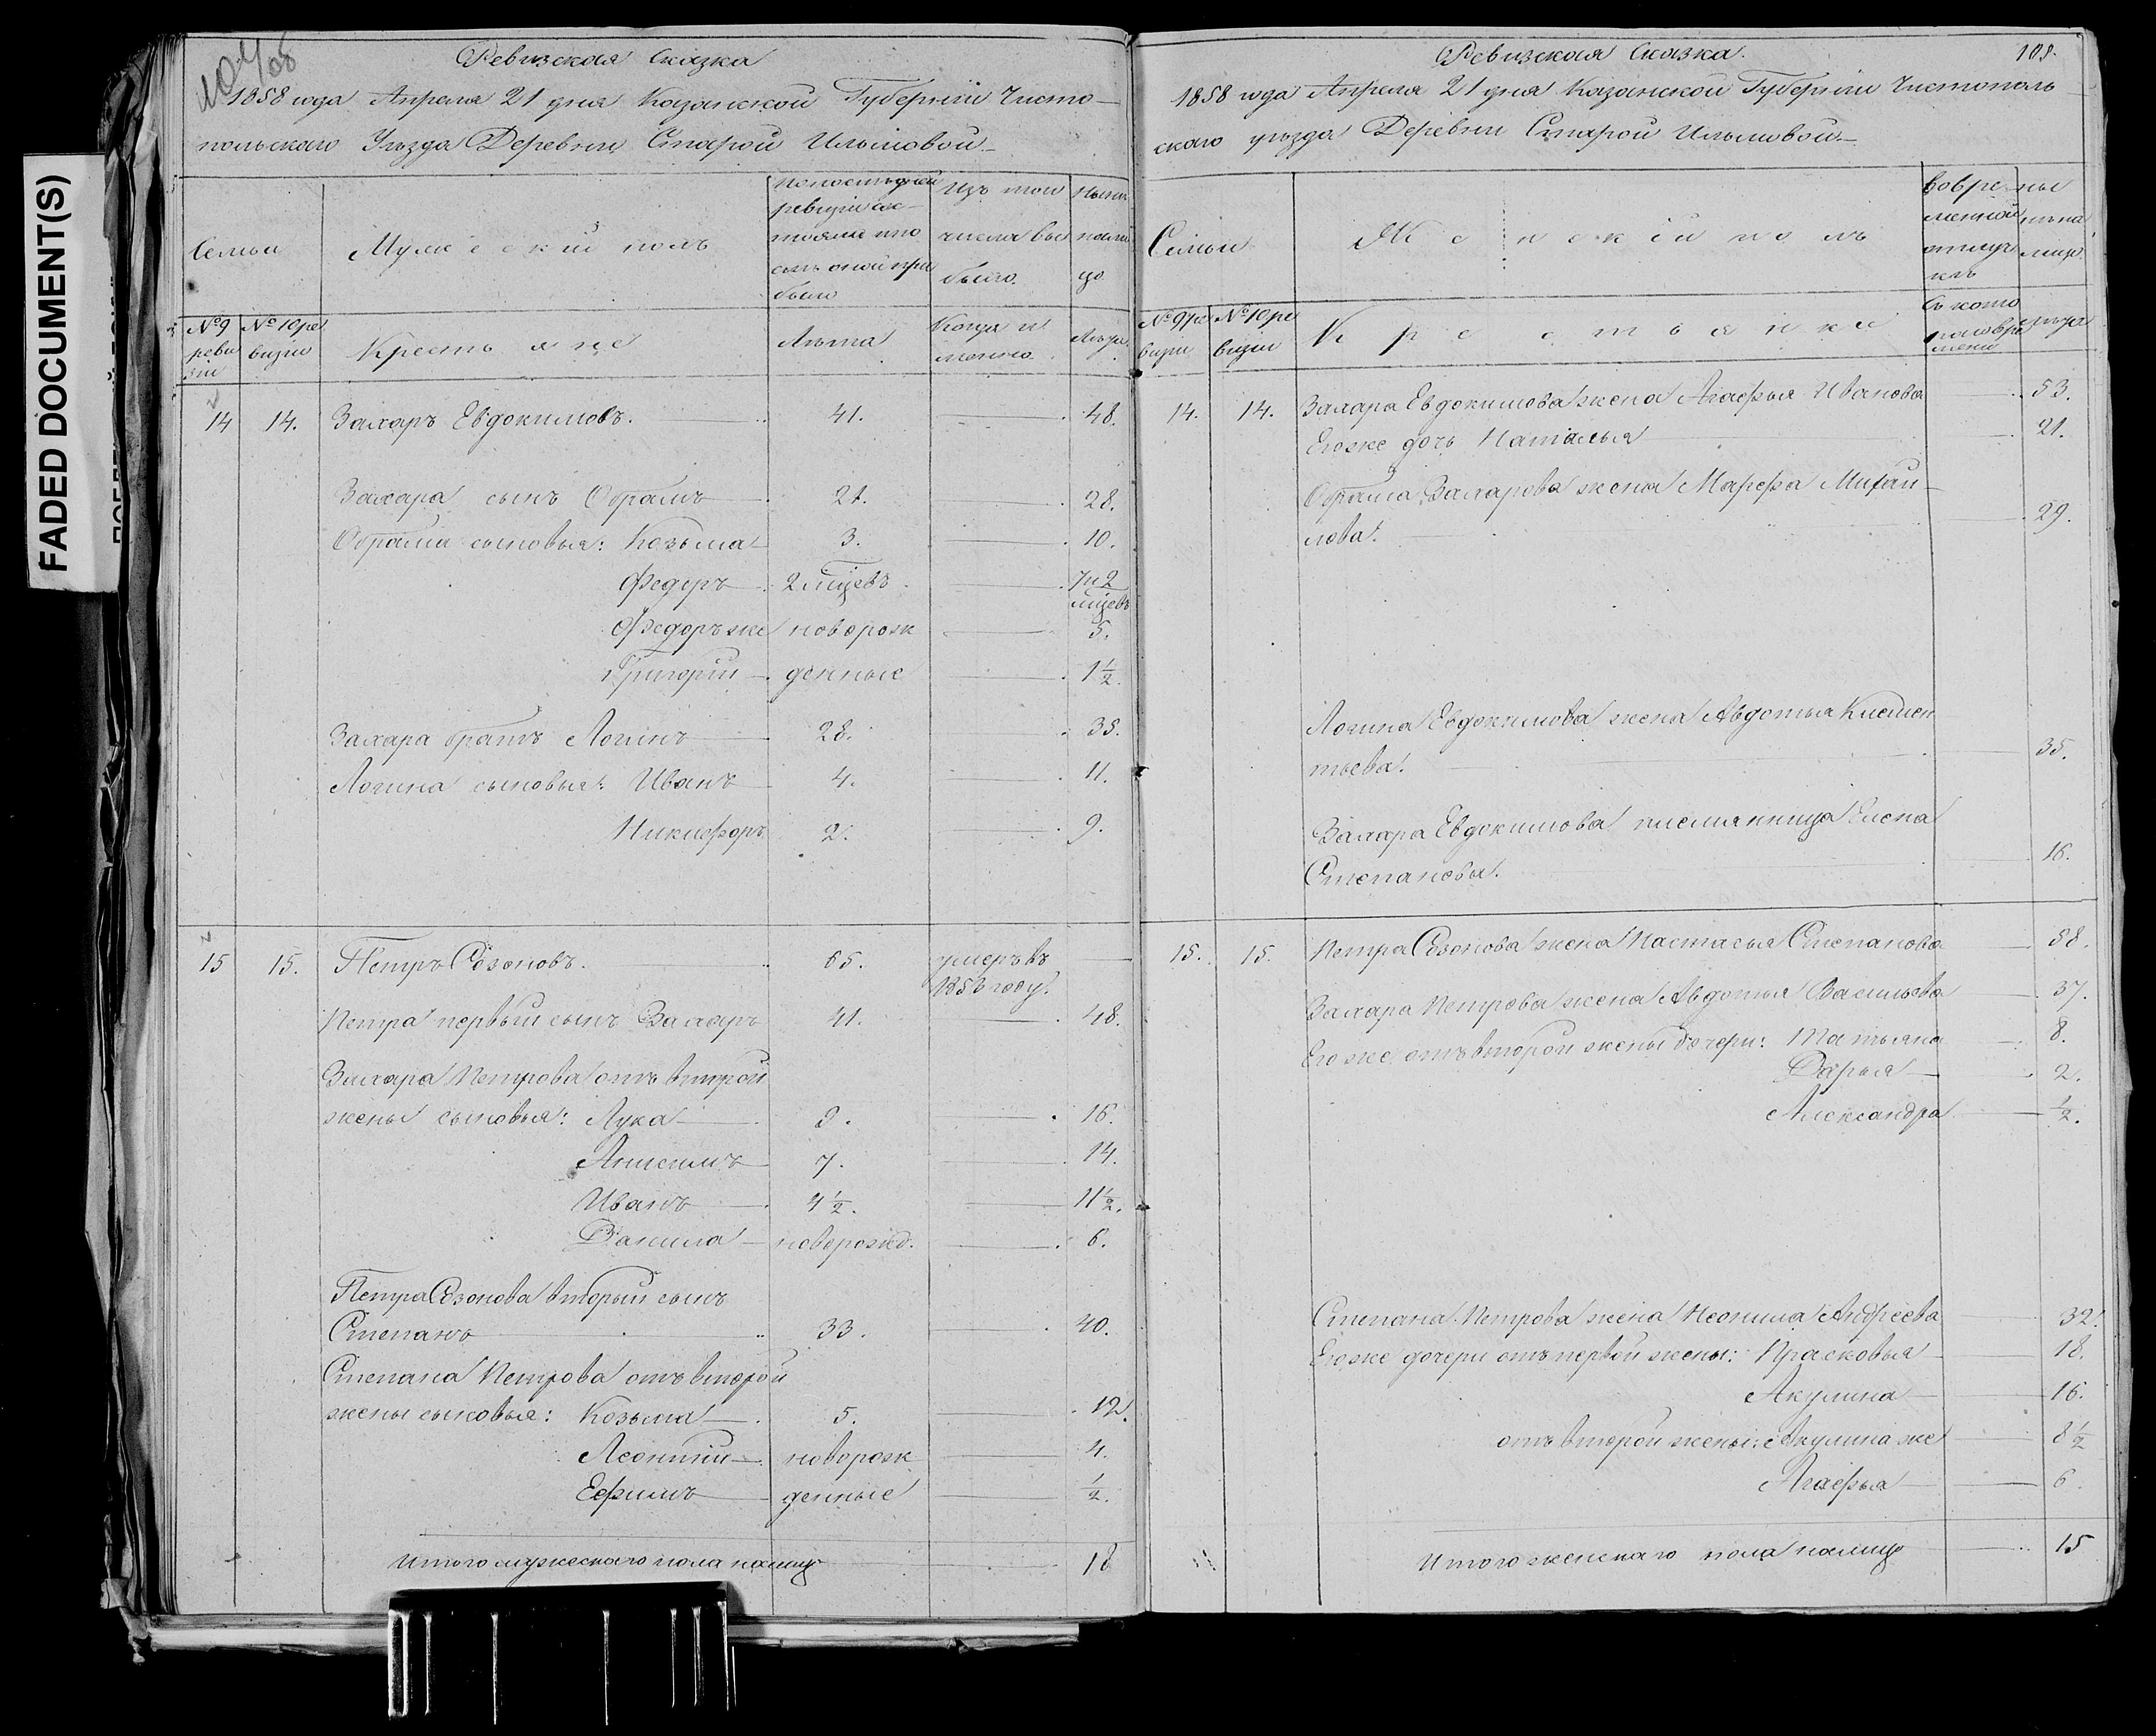 FADED DOCUMENT(S)
Ревизская Сказка
1858 года Апреля 21 дня Казанской Губернiи Чисто-
польскаго Уѣзда Деревни Старой Ильмовой
Семьи
Мужескiй полъ
По последней ревизiи состояло и послѣ оной прибыло
Изъ того числа выбыло
Нынѣ на лицо
№ 9 ревизiи
№ 10 ревизiи
Крестьяне
Лѣта
Когда именно
Лѣта
14 14. Захаръ Евдокимовъ. 41. 48.
Захара сынъ Обрамъ 21. 28.
Обрама сыновья: Козьма 3. 10.
Федоръ 2 мцевъ 7 и 2 мцевъ
Федоръ же новорож 5.
Григорiй денные 1 1/2.
Захара братъ Логинъ 28. 35.
Логина сыновья: Иванъ 4. 11.
Никифоръ 2. 9.
15 15. Петръ Созоновъ. 65. умеръ въ
1853 году.
Петра первый сынъ Захаръ 41. 48.
Захара Петрова отъ второй
жены сыновья: Лука 9. 16.
Анисимъ 7. 14.
Иванъ 4 1/2. 11 1/2.
Данила новорожд. 6.
Петра Созонова вторый сынъ
Степанъ 33. 40.
Степана Петрова отъ второй
жены сыновья: Козьма 5. 12.
Леонтiй новорож 4.
Ефимъ денные 1/2.
Итого мужескаго пола налицо 18
Ревизская Сказка. 108.
1858 года Апреля 21 дня Казанской Губернiи Чистополь
скаго уѣзда Деревни Старой Ильмовой
Семьи
Женскiй полъ
Во временной отлучкѣ
Нынѣ на лицо
№ 9 ревизiи
№ 10 ревизiи
Крестьянки
Съ котораго времени
Лѣта
14. 14. Захара Евдокимова жена Агафья Иванова 53.
Его же дочь Наталья 21.
Обрама Захарова жена Марфа Михай-
лова. 29.
Логина Евдокимова жена Авдотья Клемен
тьева. 35.
Захара Евдокимова племянница Елена
Степанова. 16.
15. 15. Петра Созонова жена Настасья Степанова 58.
Захара Петрова жена Авдотья Васильева 37.
Его же отъ второй жены дочери: Татьяна 8.
Дарья 2.
Александра 1/2.
Степана Петрова жена Неонила Андреева 32.
Его же дочери отъ первой жены: Прасковья 18.
Акулина 16.
отъ второй жены: Акулина же 8 1/2
Агафья 6.
Итого женскаго пола налицо 15